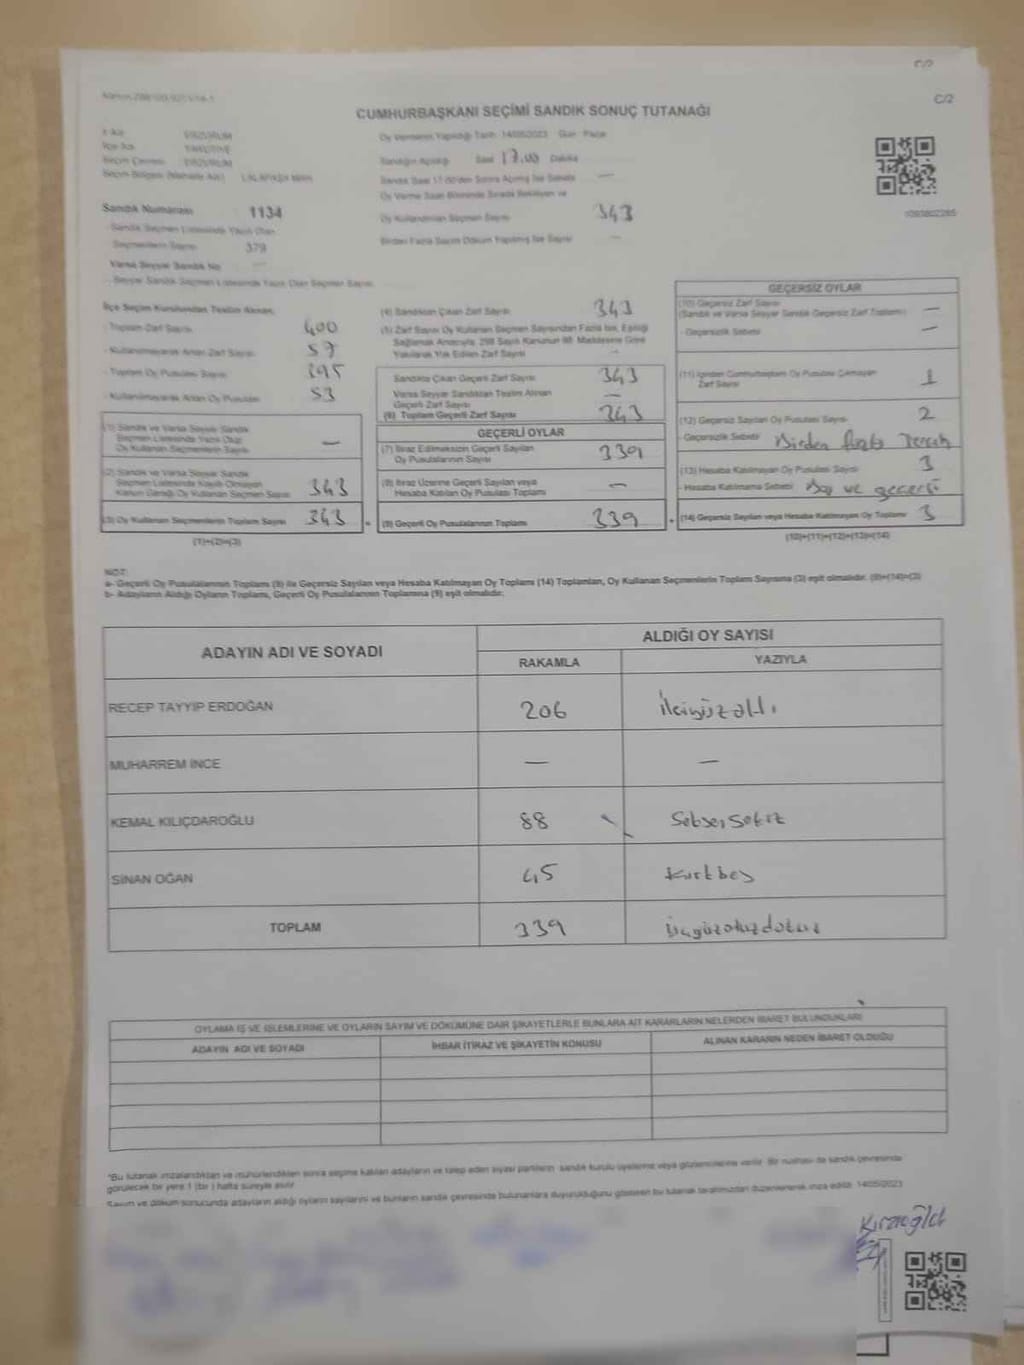 C/2
C/2
CUMHURBAŞKANI SEÇİMİ SANDIK SONUÇ TUTANAĞI
İl Adı ERZURUM
İlçe Adı YAKUTİYE
Seçim Çevresi ERZURUM
Seçim Bölgesi (Mahalle Adı) LALAPAŞA MAH.
Sandık Numarası 1134
- Sandık Seçmen Listesinde Yazılı Olan
Seçmenlerin Sayısı 379
Varsa Seyyar Sandık No
- Seyyar Sandık Seçmen Listesinde Yazılı Olan Seçmen Sayısı
Oy Vermenin Yapıldığı Tarih 14/05/2023 Gün Pazar
Sandığın Açıldığı Saat 17.00 Dakika
Sandık Saat 17.00'den Sonra Açılmış İse Sebebi —
Oy Verme Saati Bitiminde Sırada Bekleyen ve
Oy Kullandırılan Seçmen Sayısı 343
Birden Fazla Sayım Döküm Yapılmış İse Sayısı —
İlçe Seçim Kurulundan Teslim Alınan;
- Toplam Zarf Sayısı 400
- Kullanılmayarak Artan Zarf Sayısı 57
- Toplam Oy Pusulası Sayısı 395
- Kullanılmayarak Artan Oy Pusulası 53
(1) Sandık ve Varsa Seyyar Sandık
Seçmen Listesinde Yazılı Olup
Oy Kullanan Seçmenlerin Sayısı —
(2) Sandık ve Varsa Seyyar Sandık
Seçmen Listesinde Kayıtlı Olmayan
Kanun Gereği Oy Kullanan Seçmen Sayısı 343
(3) Oy Kullanan Seçmenlerin Toplam Sayısı 343
(1)+(2)=(3)
(4) Sandıktan Çıkan Zarf Sayısı 343
(5) Zarf Sayısı Oy Kullanan Seçmen Sayısından Fazla İse, Eşitliği
Sağlamak Amacıyla, 298 Sayılı Kanunun 98. Maddesine Göre
Yakılarak Yok Edilen Zarf Sayısı —
Sandıkta Çıkan Geçerli Zarf Sayısı 343
Varsa Seyyar Sandıktan Teslim Alınan
Geçerli Zarf Sayısı —
(6) Toplam Geçerli Zarf Sayısı 343
GEÇERLİ OYLAR
(7) İtiraz Edilmeksizin Geçerli Sayılan
Oy Pusulalarının Sayısı 339
(8) İtiraz Üzerine Geçerli Sayılan veya
Hesaba Katılan Oy Pusulası Toplamı —
(9) Geçerli Oy Pusulalarının Toplamı 339
GEÇERSİZ OYLAR
(10) Geçersiz Zarf Sayısı
(Sandık ve Varsa Seyyar Sandık Geçersiz Zarf Toplamı) —
- Geçersizlik Sebebi —
(11) İçinden Cumhurbaşkanı Oy Pusulası Çıkmayan
Zarf Sayısı 1
(12) Geçersiz Sayılan Oy Pusulası Sayısı 2
- Geçersizlik Sebebi Birden fazla Tercih
(13) Hesaba Katılmayan Oy Pusulası Sayısı 3
- Hesaba Katılmama Sebebi Boş ve geçersiz
(14) Geçersiz Sayılan veya Hesaba Katılmayan Oy Toplamı 3
(10)+(11)+(12)+(13)=(14)
NOT:
a- Geçerli Oy Pusulalarının Toplamı (9) ile Geçersiz Sayılan veya Hesaba Katılmayan Oy Toplamı (14) Toplamları, Oy Kullanan Seçmenlerin Toplam Sayısına (3) eşit olmalıdır. (9)+(14)=(3)
b- Adayların Aldığı Oyların Toplamı, Geçerli Oy Pusulalarının Toplamına (9) eşit olmalıdır.
ADAYIN ADI VE SOYADI
ALDIĞI OY SAYISI
RAKAMLA YAZIYLA
RECEP TAYYİP ERDOĞAN 206 İkiyüzaltı
MUHARREM İNCE — —
KEMAL KILIÇDAROĞLU 88 Seksensekiz
SİNAN OĞAN 45 Kırkbeş
TOPLAM 339 üçyüzotuzdokuz
OYLAMA İŞ VE İŞLEMLERİNE VE OYLARIN SAYIM VE DÖKÜMÜNE DAİR ŞİKAYETLERLE BUNLARA AİT KARARLARIN NELERDEN İBARET BULUNDUKLARI
ADAYIN ADI VE SOYADI İHBAR İTİRAZ VE ŞİKAYETİN KONUSU ALINAN KARARIN NEDEN İBARET OLDUĞU
*Bu tutanak imzalandıktan ve mühürlendikten sonra seçime katılan adayların ve talep eden siyasi partilerin sandık kurulu üyelerine veya gözlemcilerine verilir. Bir nüshası da sandık çevresinde
görülecek bir yere 1 (bir) hafta süreyle asılır.
Sayım ve döküm sonucunda adayların aldığı oyların sayılarını ve bunların sandık çevresinde bulunanlara duyurulduğunu gösteren bu tutanak tarafımızdan düzenlenerek imza edildi. 14/05/2023